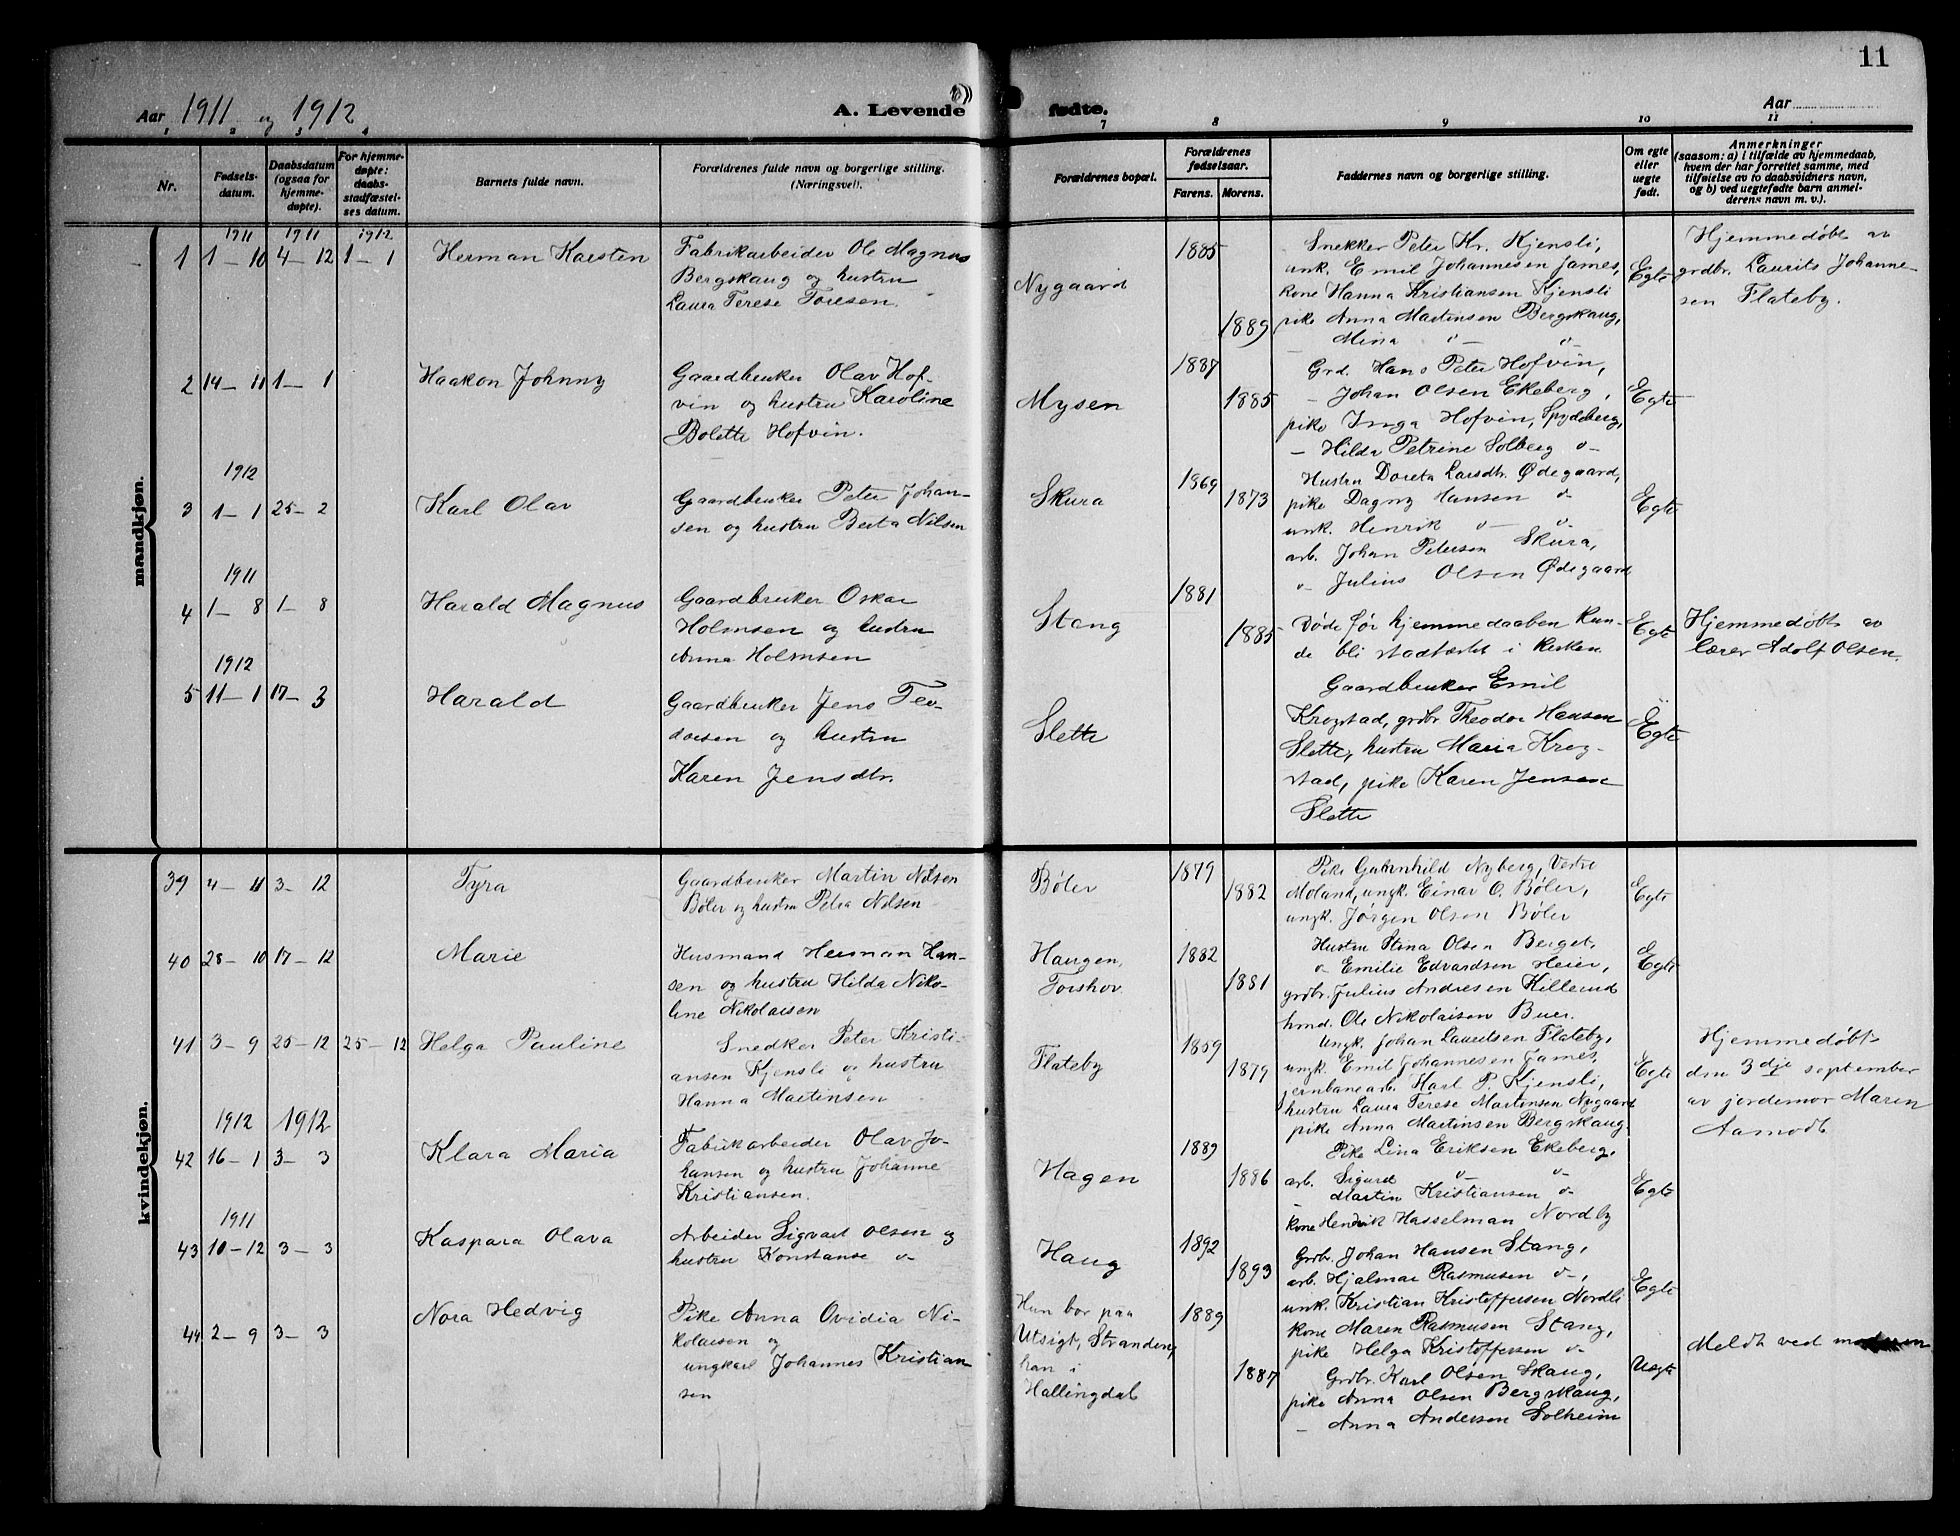 11
Aar 1911 og 1912
A. Levende
fødte.
Aar
1 2 3 4 7 8 9 10 11
Nr.
Fødsels-
datum.
Daabsdatum
(ogsaa for
hjemme-
døpte).
For hjemme-
døpte:
daabs-
stadfæstel-
ses datum.
Barnets fulde navn.
Forældrenes fulde navn og borgerlige stilling.
(Næringsvei).
Forældrenes bopæl.
Forældrenes
fødselsaar.
Farens. Morens.
Faddernes navn og borgerlige stilling.
Om egte
eller
uegte
født.
Anmerkninger
(saasom: a) i tilfælde av hjemmedaab,
hvem der har forrettet samme, med
tilføielse av to daabsvidners navn,
og b) ved uegtefødte barn anmel-
derens navn m. v.).
mandkjøn.
1911 1911 1912
1 1-10 4-12 1-1
Herman Karsten
Fabrikarbeider Ole Magnus
Bergskaug og hustru
Laura Terese Toresen.
Nygaard
1885
1889
Snekker Peter Kr. Kjensli,
unk. Emil Johannesen James,
kone Hanna Kristiansen Kjensli
pike Anna Martinsen Bergskaug,
- Mina o- o-
Egte
Hjemmedøbt av
grdbr. Laurits Johanne-
sen Flateby.
2 14-11 1-1
Haakon Johnny
Gaardbruker Olav Hof-
vin og hustru Karoline
Bolette Hofvin.
Mysen
1887
1885
Grd. Hans Peter Hofvin,
- Johan Olsen Ekeberg,
pike Inga Hofvin, Spydeberg,
- Hilda Petrine Solberg o-
Egte
1912
3 1-1 25-2
Karl Olav
Gaardbruker Peter Johan-
sen og hustru Berta Nilsen
Skura
1869
1873
Hustru Doreta Larsdtr. Ødegaard,
pike Dagny Hansen o-
unk. Henrik o- o-
arb. Johan Petersen Skura,
o- Julius Olsen Ødegaard
Egte
1911
4 1-8 1-8
Harald Magnus
Gaardbruker Oskar
Holmsen og hustru
Anna Holmsen
Stang
1881
1885
Døde før hjemmedaaben kun-
de bli stadfæstet i kirken
Egte
Hjemmedøbt av
lærer Adolf Olsen.
1912
5 11-1 17-3
Harald
Gaardbruker Jens Teo-
dorsen og hustru
Karen Jensdtr.
Slette
Gaardbruker Emil
Krogstad, grdbr Theodor Hansen
Slette, hustru Maria Krog-
stad, pike Karen Jensen
Slette
Egte
kvindekjøn.
39 4-11 3-12
Tyra
Gaardbruker Martin Nilsen
Bøler og hustru Petra Nilsen
Bøler
1879
1882
Pike Gunhild Nyberg, Vestre
Moland, ungk. Einar O. Bøler,
ungk. Jørgen Olsen Bøler
Egte
40 28-10 17-12
Marie
Husmand Herman Han-
sen og hustru Hilda Niko-
line Nikolaisen
Haugen,
Torshov.
1882
1881
Hustru Stina Olsen Berget,
o- Emilie Edvardsen Heier,
grdbr. Julius Andresen Killerud
hmd. Ole Nikolaisen Buer.
Egte
41 3-9 25-12 25-12
Helga Pauline
Snedker Peter Kristi-
ansen Kjensli og hustru
Hanna Martinsen
Flateby
1859
1879
Ungk. Johan Lauritsen Flateby,
ungk. Emil Johannesen James,
jernbanearb. Karl P. Kjensli,
hustru Laura Terese Martinsen Nygaard
pike Anna Martinsen Bergskaug.
Egte
Hjemmedøbt
den 3dje september
av jordemor Maren
Aamodt.
1912 1912
42 16-1 3-3
Klara Maria
Fabrikarbeider Olav Jo-
hansen og hustru Johanne
Kristiansen.
Hagen
1889
1886
Pike Lina Eriksen Ekeberg,
arb. Sigurd o- o-
- Martin Kristiansen o-
kone Hendrik Hasselman Nordby
Egte
1911
43 10-12 3-3
Kaspara Olava
Arbeider Sigvart Olsen og
hustru Konstanse o-
Haug
1892
1893
Grdbr. Johan Hansen Stang,
arb. Hjalmar Rasmusen o-,
unk. Kristian Kristoffersen Nordli
kone Maren Rasmusen Stang,
pike Helga Kristoffersen o-
Egte
44 2-9 3-3
Nora Hedvig
Pike Anna Ovidia Ni-
kolaisen og
ungkarl Johannes Kristian-
sen
Hun bor paa
Utsigt, Stranden,
han i
Hallingdal
1889
1887
Grdbr. Karl Olsen Skaug,
pike Anna Olsen Bergskaug,
- Anna Andersen Solheim
Uegte
Meldt ved moderen